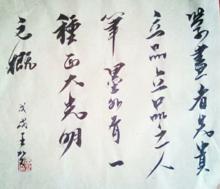 学画者先贵
立品立品之人
笔墨外自有一
种正大光明
之概
戊戌王